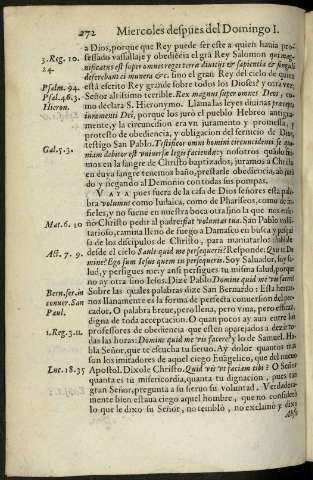 272 Miercoles despues del Domingo I.
a Dios, porque que Rey puede ser este a quien hauia pro-
3. Reg. 10. fessado vassallaje y obediẽcia el grã Rey Salomon qui mag-
24. nificatus est super omnes reges terra diuitijs & sapientia & singuli
deferebant ei munera &c. sino el gran Rey del cielo de quien
Psalm. 94. està escrito Rey grande sobre todos los Dioses? y otra vez,
Psal. 46.3. Señor altissimo terrible. Rex magnus super omnes Deos, co-
Hieron. mo declara S. Hieronymo. Llama las leyes diuinas
iuramenti Dei, porque los jurò el pueblo Hebreo antigua-
mente, y la circuncision era vn juramento y promessa, y
protesto de obediencia, y obligacion del seruicio de Dios,
Gal. 5. 3. testigo San Pablo. Testificor omni homini circumcidenti se quo-
niam debitor est vniuersæ legis faciendæ: y nosotros quãdo fui-
mos en la sangre de Christo baptizados, juramos à Christo
en cuya sangre tenemos baño, prestarle obediencia, abjurã
do y negando al Demonio con todas sus pompas.
VAYA pues fuera de la casa de Dios señores esta pala-
bra volumus como Iudaica, como de Phariseos, como de in-
fieles, y no suene en nuestra boca otra sino la que nos ense-
Mat. 6. 10 ñò Christo pedir al padre fiat voluntas tua. San Pablo volũ-
tarioso, camina lleno de fuego a Damasco en busca y pesqui
sa de los discipulos de Christo, para maniatarlos
Act. 7. 9. desde el cielo Saule quid me persequeris? Responde: Quis es Do-
mine? Ego sum Iesus quem tu persequeris. Soy Saluador, soy sa-
lud, y persigues me: y ansi persigues tu misma salud, porque
no ay otra sino Iesus. Dize Pablo Domine quid me vis facere?
Bern. ser. in Sobre las quales palabras dize San Bernardo: Esta herma-
conuer. San nos llanamente es la forma de perfecta conuersion del pec-
Paul. cador. O palabra breue, pero llena, pero viua, pero efficaz,
digna de toda acceptacion. O quan pocos ay aun entre los
1. Reg. 3. 11. professores de obediencia que esten aparejados a dezir to-
das las horas: Domine quid me vis facere? y lo de Samuel. Ha-
bla Señor, que te escucha tu seruo. Ay dolor quantos mas
son los imitadores de aquel ciego Euãgelico, que del nueuo
Luc. 18. 35 Apostol. Dixole Christo. Quid vis vt faciam tibi? O Señor
quanta es tu misericordia, quanta tu dignacion, pues tan
gran Señor, pregunta a su seruo su voluntad. Verdadera-
mente bien estaua ciego aquel hombre, que no considerò
lo que le dixo su Señor, no temblò, no exclamò y dixo
Abs-